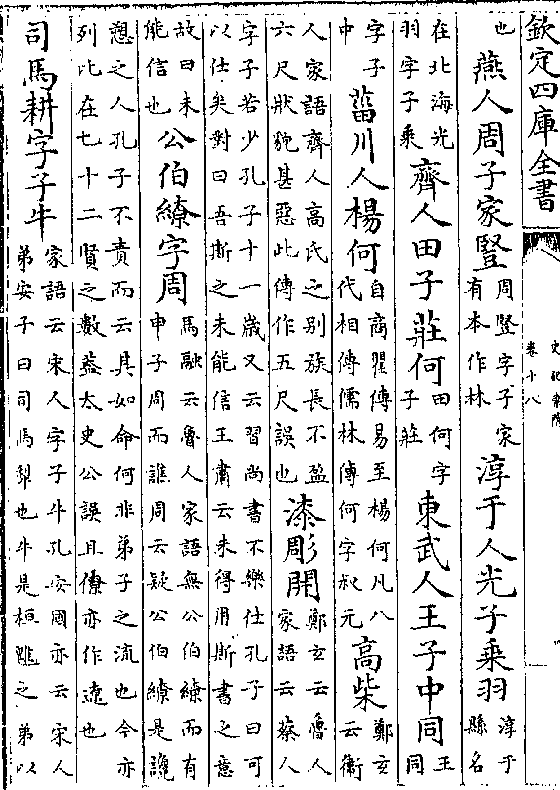 欽定四庫全書
史記索隱
卷十八
也
燕人周子家豎
周豎字子家
有本作林
淳于人光子乘羽
淳于
縣名
在北海光
羽字子乘
齊人田子莊何
田何字
子莊
東武人王子中同
王
同
字子
中
菑川人楊何
自商瞿傳易至楊何凡八
代相傳儒林傳何字叔元
高柴
鄭玄
云衛
人家語齊人高氏之別族長不盈
六尺狀貌甚惡此傳作五尺誤也
漆彫開
鄭玄云魯人
家語云蔡人
字子若少孔子十一歲又云習尚書不樂仕孔子曰可
以仕矣對曰吾斯之未能信王肅云未得用斯書之意
故曰未
能信也
公伯繚字周
馬融云魯人家語無公伯繚而有
申子周而譙周云疑公伯繚是讒
愬之人孔子不責而云其如命何非弟子之流也今亦
列比在七十二賢之數蓋太史公誤且僚亦作遼也
司馬耕字子牛
家語云宋人字子牛孔安國亦云宋人
弟安子曰司馬犂也牛是桓魋之弟以